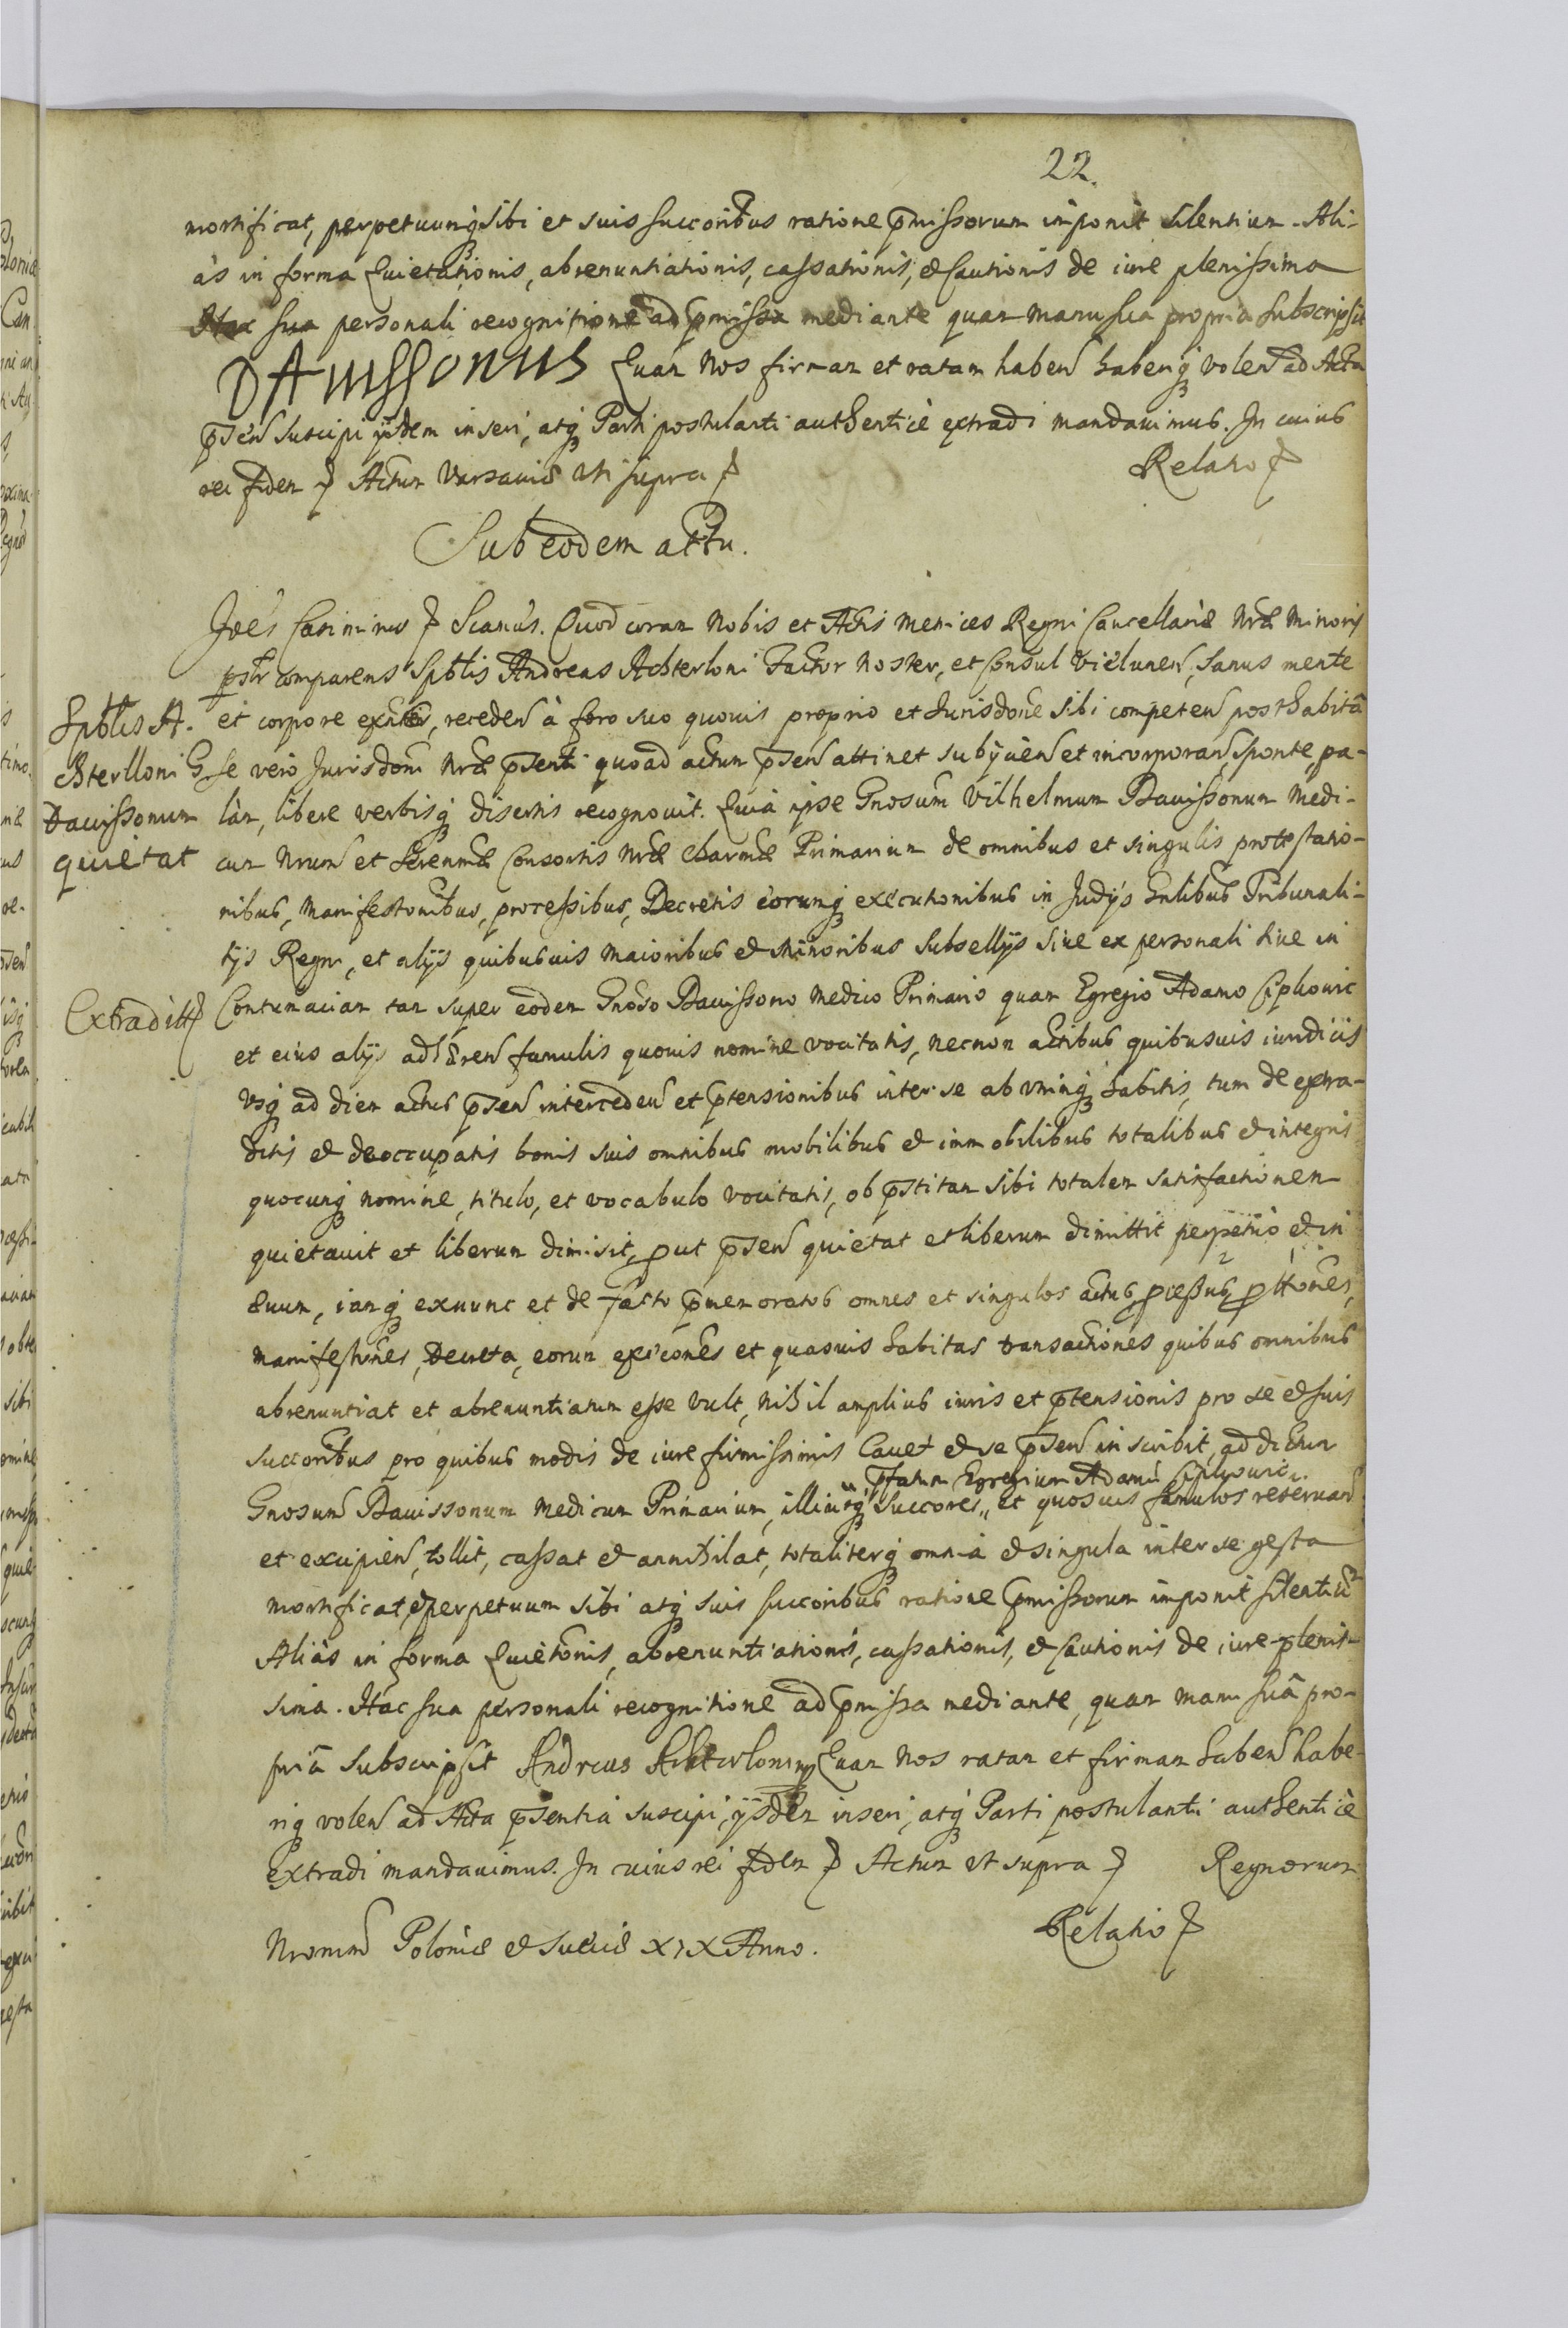 22.
mortificat, perpetuumq sibi et suis succoribus ratione pmissorum imponit silentium. Ali-
às in forma Quietationis, abrenuntiationis, cassationis, et Cautionis de iure plenissima
Hac sua personali recognitione ad pmissa mediante quam manu sua propria subscripsit
DAuissonus Quam Nos firmam et ratam haben haberiq volen ad Acta
psen suscipi ijsdem inseri, atq Parti postulanti authenticè extradi mandauimus. In cuius
rei fidem Actum Varsauiæ Vti supra
Relatio
Sub eodem actu.
Joes Casimirus Scamus. Quod coram Nobis et Actis Metrices Regni Cancellariæ Nræ Minoris
pstr comparens Spblis Andreas Achterloni Factor Noster, et Consul Vielunen, sanus mente
Spblis A. et corpore exnts, receden à foro suo quouis proprio et Jurisdone sibi competen posthabitâ
chterlloni G. se verò Jurisdoni Nræ psenti quoad actum psen attinet subijcien et incorporan, sponte, pa-
Dauissonum làm, libere verbisq disertis recognouit. Quia ipse Gnosum Vilhelmum Dauissonum Medi-
quietat cum Nrum et Serenmæ Consortis Nræ charmæ Primarium de omnibus et singulis protestatio-
nibus, Manifestonibus, processibus, Decretis eorumq executionibus in Judijs Gnlibus Tribunali-
tijs Regni, et alijs quibusuis maioribus et minoribus Subsellijs siue ex personali siue in
Extraditt Contumaciam tam super eodem Gnoso Dauissono Medico Primario quam Egregio Adamo Ciphouic
et eius alijs adhæren famulis quouis nomine vocitatis, necnon actibus quibusuis iuridicis
vsq ad diem actus psen interceden et ptensionibus inter se ab vtrinq habitis, tum de extra-
ditis et deoccupatis bonis suis omnibus mobilibus et immobilibus totalibus et integris
quocunq nomine, titulo, et vocabulo vocitatis, ob pstitam sibi totalem satisfactionem
quietauit et liberum dimisit, put psen quietat et liberum dimittit perpetuò et in
æuum, iamq exnunc et de facto pmemoratos omnes et singulos actus, pcessus, pttones,
manifestones, Decreta, eorum exècones et quasuis habitas transactiones quibus omnibus
abrenuntiat et abrenuntiatum esse vult, nihil amplius iuris et ptensionis pro se et suis
succoribus pro quibus modis de iure firmissimis Cauet et se psen inscribit, ad dictum
pfatum Egregium Adamu Ciphouic
Gnosum Dauissonum Medicum Primarium, illiusq succores, et quosuis famulos reseruan
et excipien, tollit, cassat et annihilat, totaliterq omnia et singula inter se gesta
mortificat, et perpetuum sibi atq suis succoribus ratione pmissorum imponit silentiu
Aliàs in forma Quietonis, abrenuntiationis, cassationis, et Cautionis de iure plenis-
sima. Hac sua personali recognitione ad pmissa mediante, quam manu suâ pro-
priâ subscripsit Andreas Achterlonius Quam Nos ratam et firmam haben habe-
riq volen ad Acta psentia suscipi, ijsdem inseri, atq Parti postulanti authenticè
extradi mandauimus. In cuius rei fidem Actum Vt supra Regnorum
Nrorum Poloniæ et Sueciæ XIX Anno.
Relatio